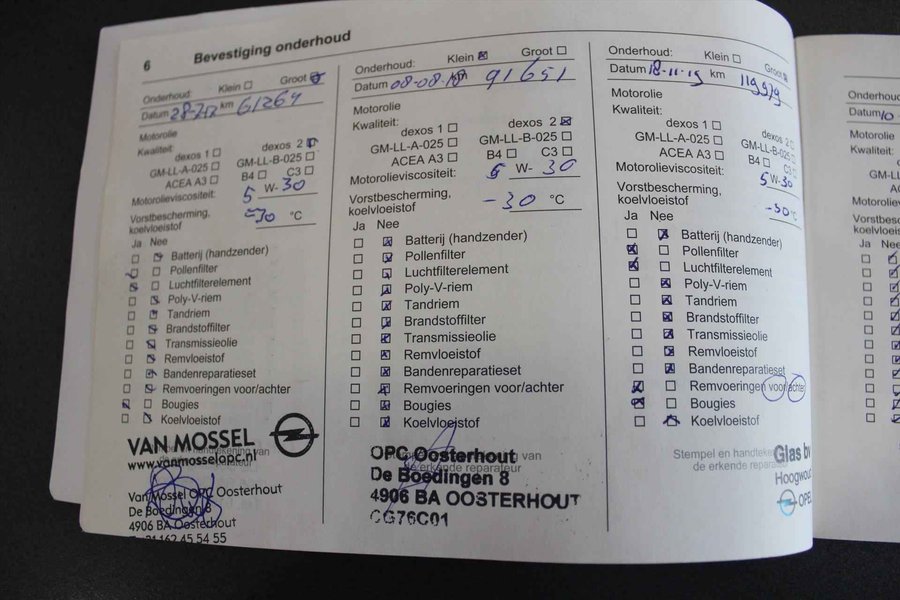 6 Bevestiging onderhoud
Onderhoud: Klein Groot
Datum km 61264
Motorolie
Kwaliteit:
dexos 1 dexos 2
GM-LL-A-025 GM-LL-B-025
ACEA A3 B4 C3
Motorolieviscositeit: 5 W-30
Vorstbescherming,
koelvloeistof -30 °C
Ja Nee
Batterij (handzender)
Pollenfilter
Luchtfilterelement
Poly-V-riem
Tandriem
Brandstoffilter
Transmissieolie
Remvloeistof
Bandenreparatieset
Remvoeringen voor/achter
Bougies
Koelvloeistof
VAN MOSSEL
www.vanmosselopc.nl
Van Mossel OPC Oosterhout
De Boedingen 8
4906 BA Oosterhout
Onderhoud: Klein Groot
Datum 08-08-18 91651
Motorolie
Kwaliteit:
dexos 1 dexos 2
GM-LL-A-025 GM-LL-B-025
ACEA A3 B4 C3
Motorolieviscositeit: 5 W-30
Vorstbescherming,
koelvloeistof -30 °C
Ja Nee
Batterij (handzender)
Pollenfilter
Luchtfilterelement
Poly-V-riem
Tandriem
Brandstoffilter
Transmissieolie
Remvloeistof
Bandenreparatieset
Remvoeringen voor/achter
Bougies
Koelvloeistof
OPC Oosterhout
De Boedingen 8
de erkende reparateur
4906 BA OOSTERHOUT
CG76C01
Onderhoud: Klein Groot
Datum 18-11-19 km 119979
Motorolie
Kwaliteit:
dexos 1 dexos 2
GM-LL-A-025 GM-LL-B-025
ACEA A3 B4 C3
Motorolieviscositeit: 5 W-30
Vorstbescherming,
koelvloeistof -30 °C
Ja Nee
Batterij (handzender)
Pollenfilter
Luchtfilterelement
Poly-V-riem
Tandriem
Brandstoffilter
Transmissieolie
Remvloeistof
Bandenreparatieset
Remvoeringen voor/achter
Bougies
Koelvloeistof
Stempel en
de erkende
Glas bv
OPEL
Datum 10
Motorolie
Kwaliteit:
Ja Nee